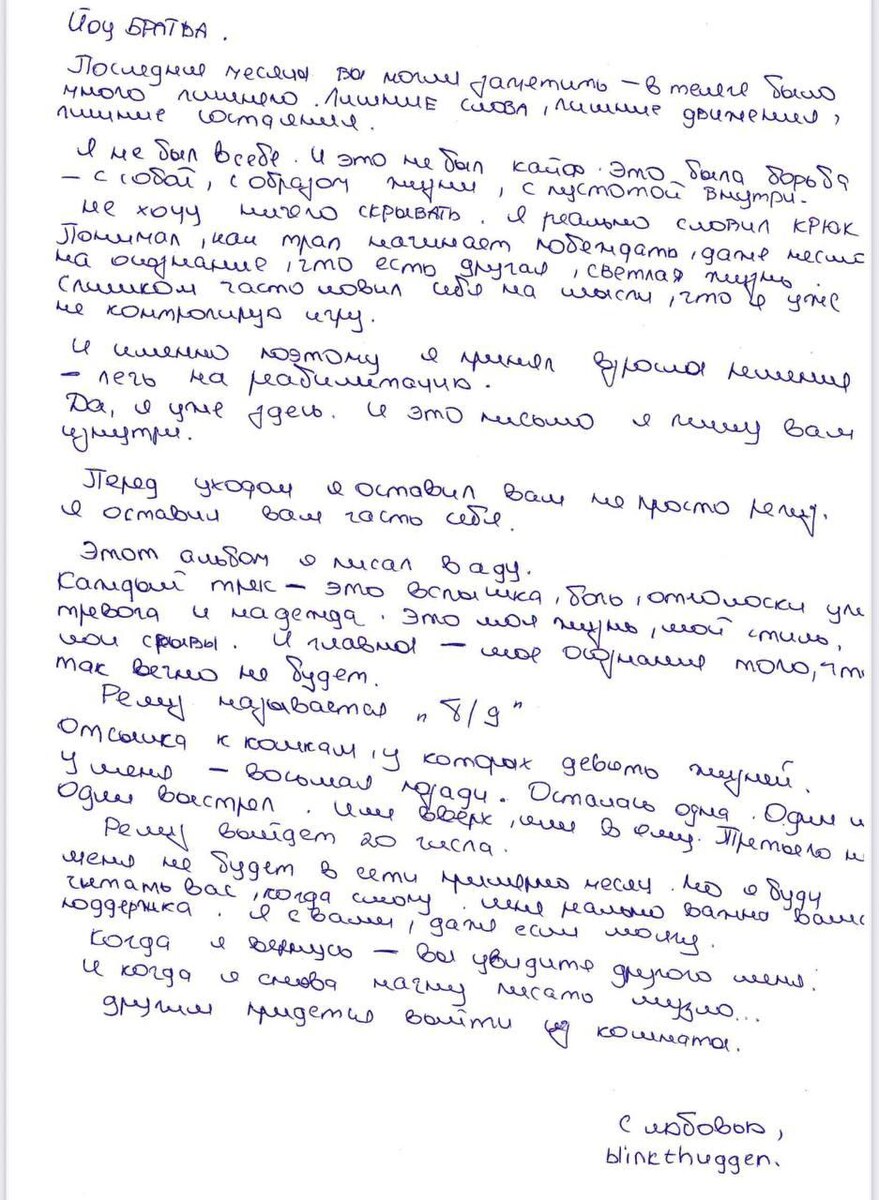 Йоу БРАТВА.
Последние месяцы вы могли заметить – в телеге было
много лишнего. Лишние слова, лишние движения,
лишние состояния.
Я не был в себе. И это не был кайф. Это была борьба
– с собой, с образом жизни, с пустотой внутри.
Не хочу ничего скрывать. Я реально словил крюк
Понимал, как трап начинает побеждать, даже
на осознание, что есть другая, светлая жизнь.
Слишком часто ловил себя на мысли, что я уже
не контролирую игру.
И именно поэтому я принял решение
– лечь на реабилитацию.
Да, я уже здесь. И это письмо я пишу вам
изнутри.
Перед уходом я оставил вам не просто релиз.
Я оставил вам часть себя.
Этот альбом я писал в аду.
Каждый трек – это вспышка, боль, отголоски
тревога и надежда. Это моя жизнь, мой стиль,
мои срывы. И главное – мое осознание того, что
так вечно не будет.
Релиз называется „8/9"
Отсылка к кошкам, у которых девять жизней.
У меня – восьмая позади. Осталась одна. Один
Один выстрел. Или вверх, или в яму. Третьего
Релиз выйдет 20 числа.
Меня не будет в сети примерно месяц. Но я буду
читать вас, когда смогу. Мне реально важна
поддержка. Я с вами, даже если молчу.
Когда я вернусь – вы увидите другого меня.
И когда я снова начну писать музло...
другим придется выйти из комнаты.
С любовью,
blinkthuggen.